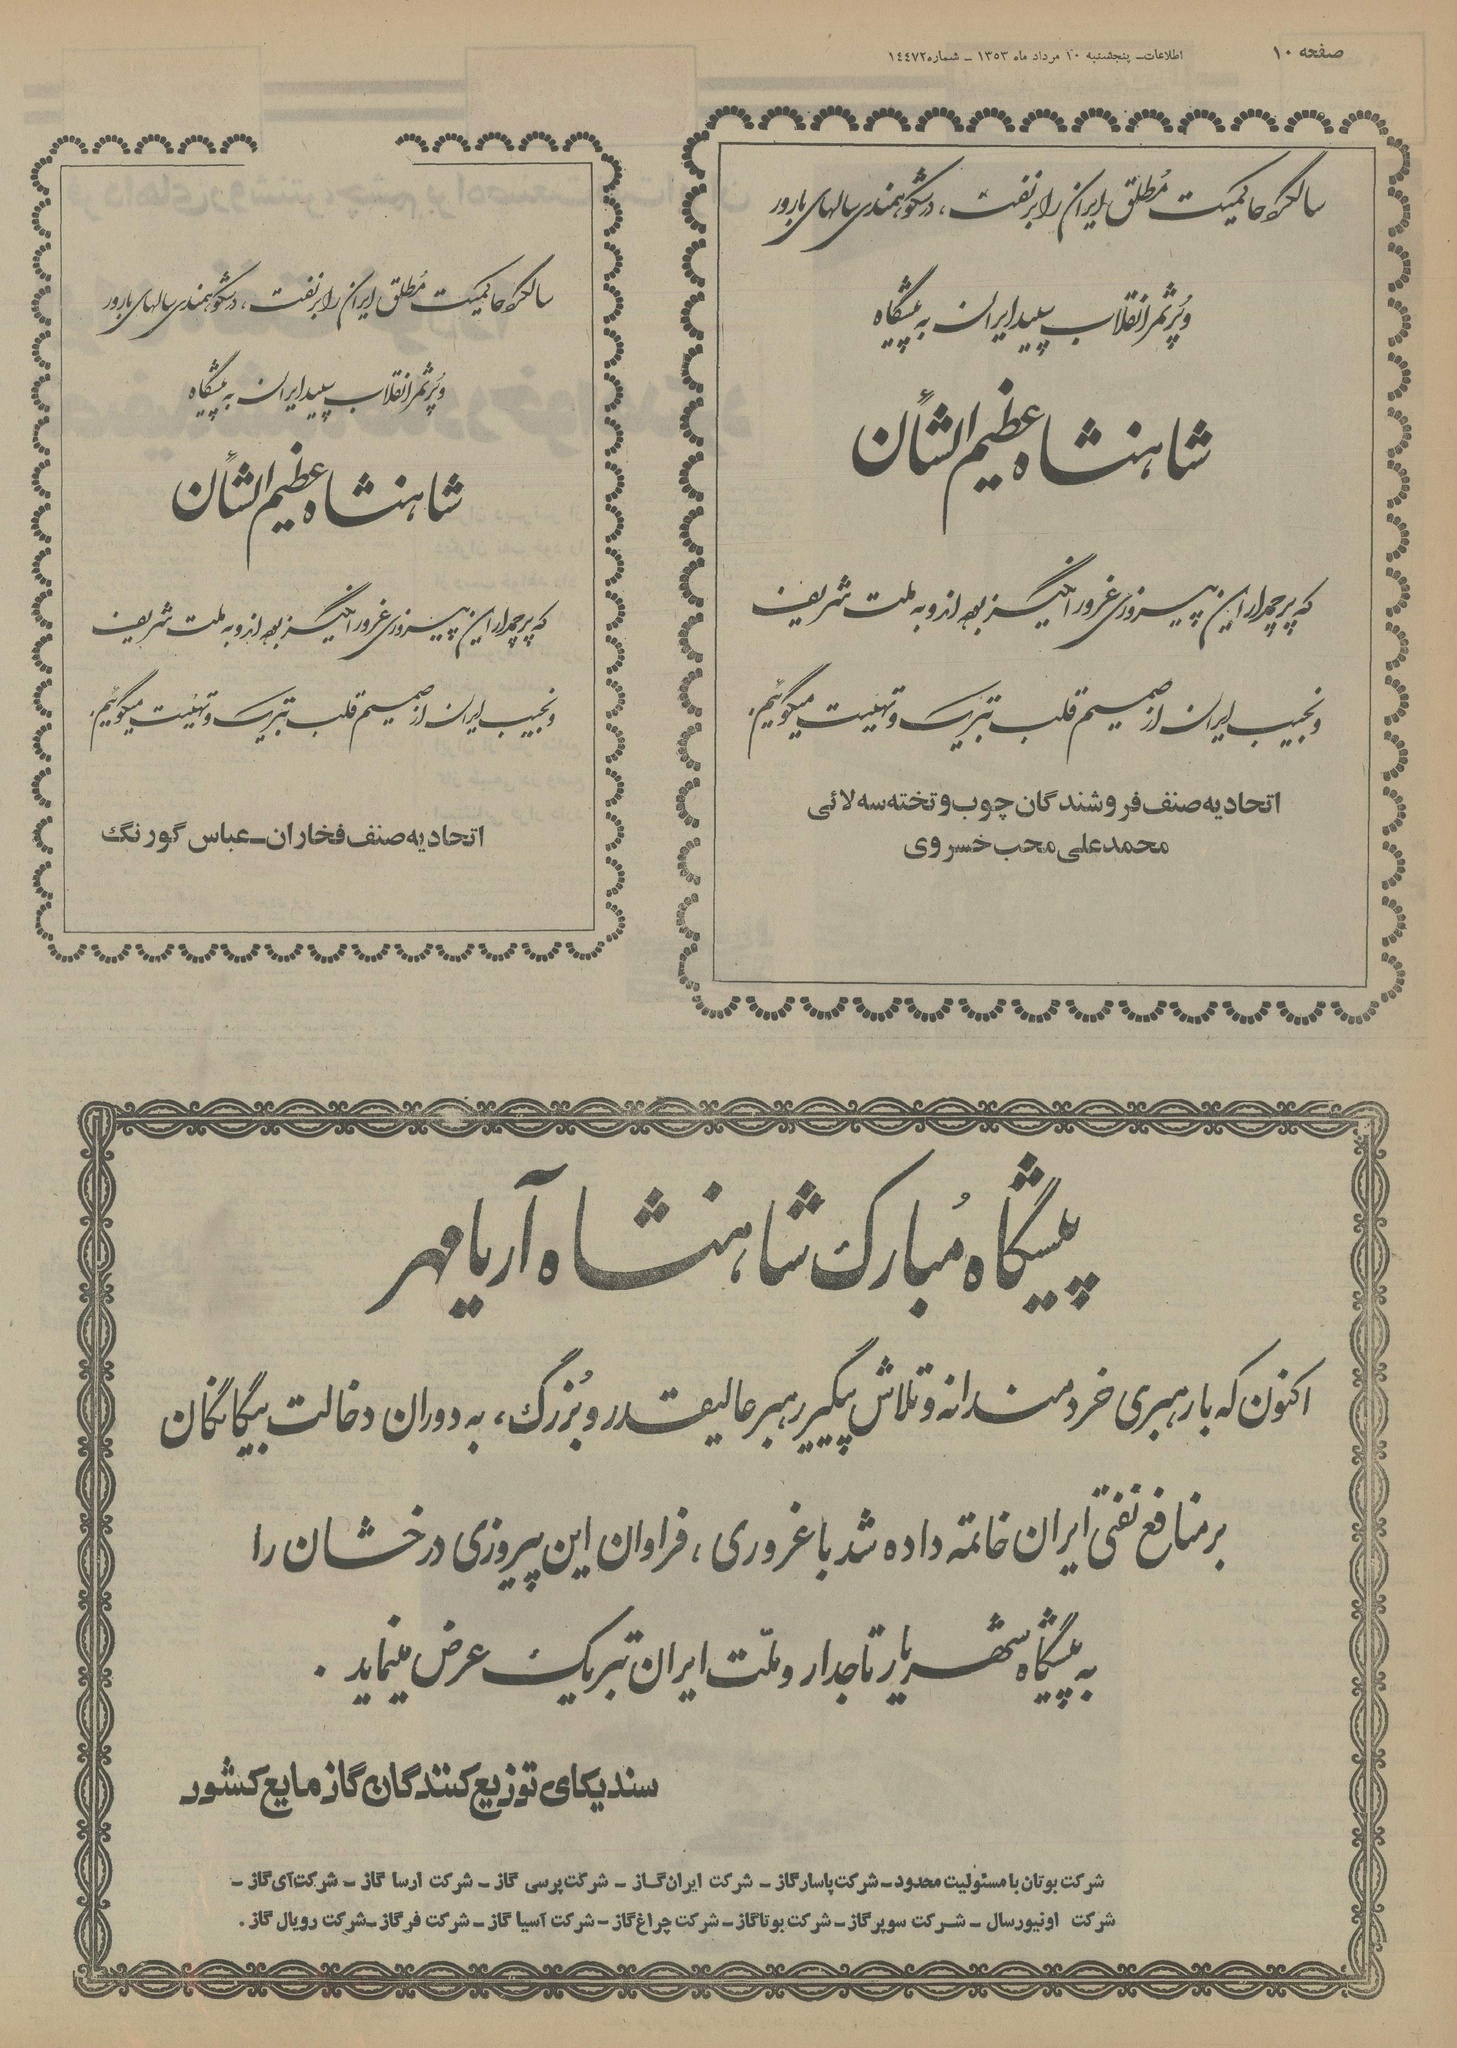 صفحه ۱۰
اطلاعات_ پنجشنبه ۱۰ مرداد ماه ۱۳۵۳ _ شماره ۱۴۴۷۲
سالگرد حاکمیت مُطلق ایران را بر نفت ، در شکوهمندی سالهای بارور
و پُر ثمر انقلاب سپید ایران به پیشگاه
شاهنشاه عظیم الشأن
که پرچمدار این پیروزی غرور انگیز بوده اند و به ملت شریف
و نجیب ایران از صمیم قلب تبریک و تهنیت میگوئیم .
اتحادیه صنف فروشندگان چوب و تخته سه لائی
محمد علی محب خسروی
سالگرد حاکمیت مُطلق ایران را بر نفت ، در شکوهمندی سالهای بارور
و پُر ثمر انقلاب سپید ایران به پیشگاه
شاهنشاه عظیم الشأن
که پرچمدار این پیروزی غرور انگیز بوده اند و به ملت شریف
و نجیب ایران از صمیم قلب تبریک و تهنیت میگوئیم .
اتحادیه صنف فخاران_عباس گورنگ
پیشگاه مُبارک شاهنشاه آریامهر
اکنون که با رهبری خردمندانه و تلاش پیگیر رهبر عالیقدر و بُزرگ ، به دوران دخالت بیگانگان
بر منافع نفتی ایران خاتمه داده شد با غروری ، فراوان این پیروزی درخشان را
به پیشگاه شهریار تاجدار و ملّت ایران تبریک عرض مینماید .
سندیکای توزیع کنندگان گاز مایع کشور
شرکت بوتان با مسئولیت محدود_شرکت پاسارگاز _ شرکت ایران گاز _ شرکت پرسی گاز _ شرکت ارسا گاز _ شرکت آی گاز _
شرکت اونیورسال _ شرکت سوپر گاز_ شرکت بوتاگاز_ شرکت چراغ گاز_ شرکت آسیا گاز_ شرکت فر گاز_شرکت رویال گاز .